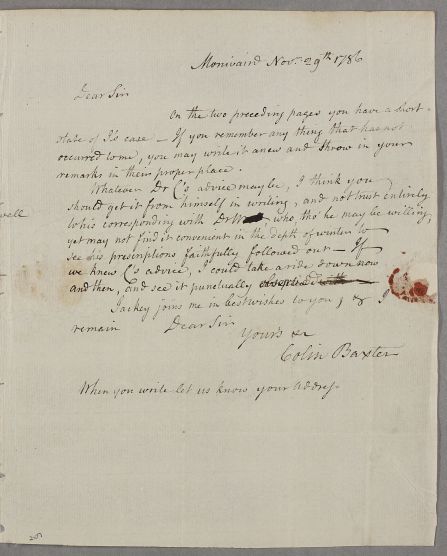 Monivaird Nov. 29th 1786
Dear Sir
On the two preceding pages you have a short
state of I's case – If you remember any thing that has not
occurred to me, you may write it anew and throw in your
remarks in their proper place.
Whatever Dr C's advice may be, I think you
should get it from himself in writing, and not trust entirely
to his corresponding with Dr who, tho' he may be willing,
yet may not find it convenient in the depth of winter to
see his prescriptions faithfully followed out – If
we knew C's advice, I could take a ride down now
and then, and see it punctually
Jackey joins me in best wishes to you, & I
remain Dear Sir
Yours &c
Colin Baxter
When you write let us know your address
well
207